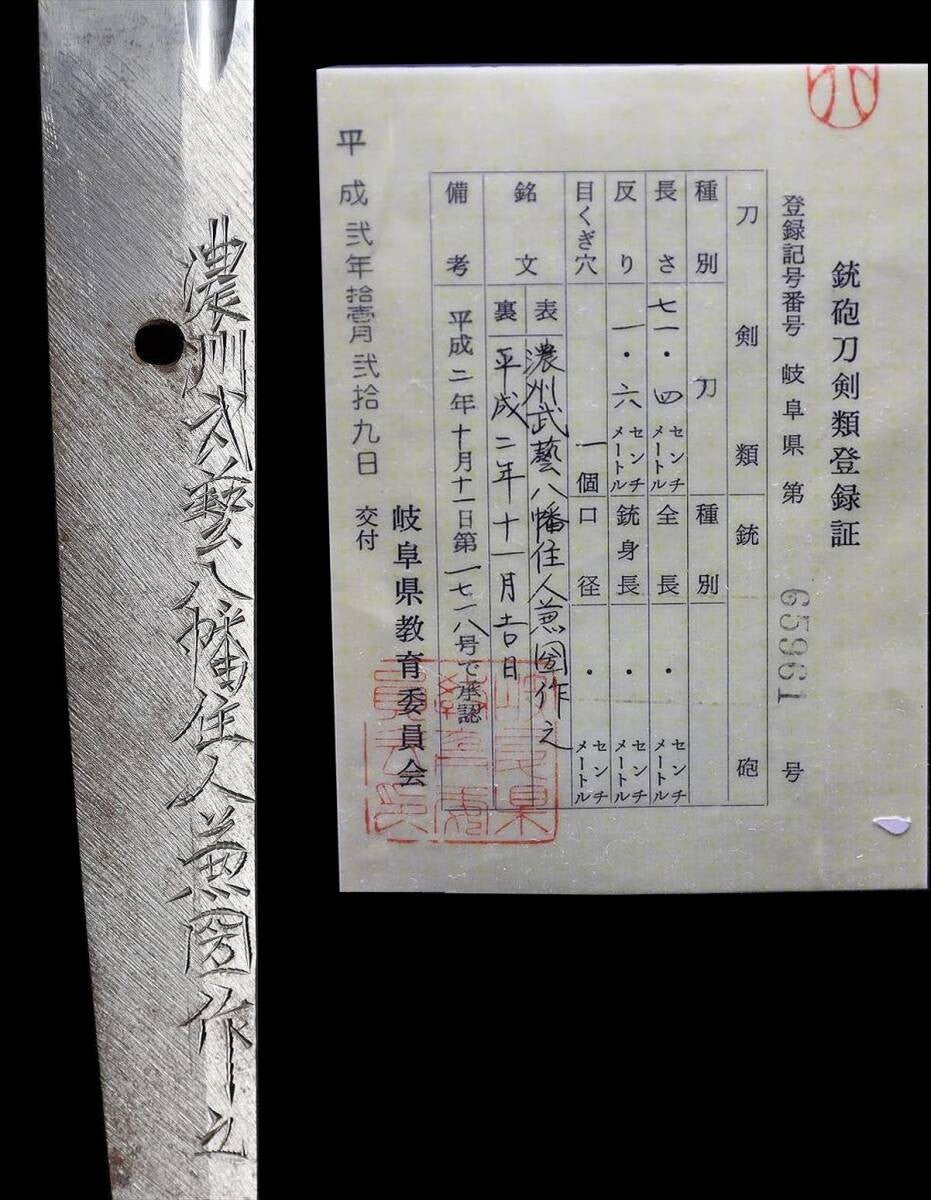 濃州武藝八幡住人兼圀作之
銃砲刀剣類登録証
登録記号番号 岐阜県 第 65961 号
刀剣類 銃砲
種別 刀 種別
長さ 七一・四 センチメートル 全長 ・ センチメートル
反り 一・六 センチメートル 銃身長 ・ センチメートル
目くぎ穴 一個 口径 ・ センチメートル
銘文 表 濃州武藝八幡住人兼圀作之
裏 平成二年十一月吉日
備考 平成二年十月十一日第一七一八号で承認
岐阜県教育委員会
平成弐年拾壱月弐拾九日 交付